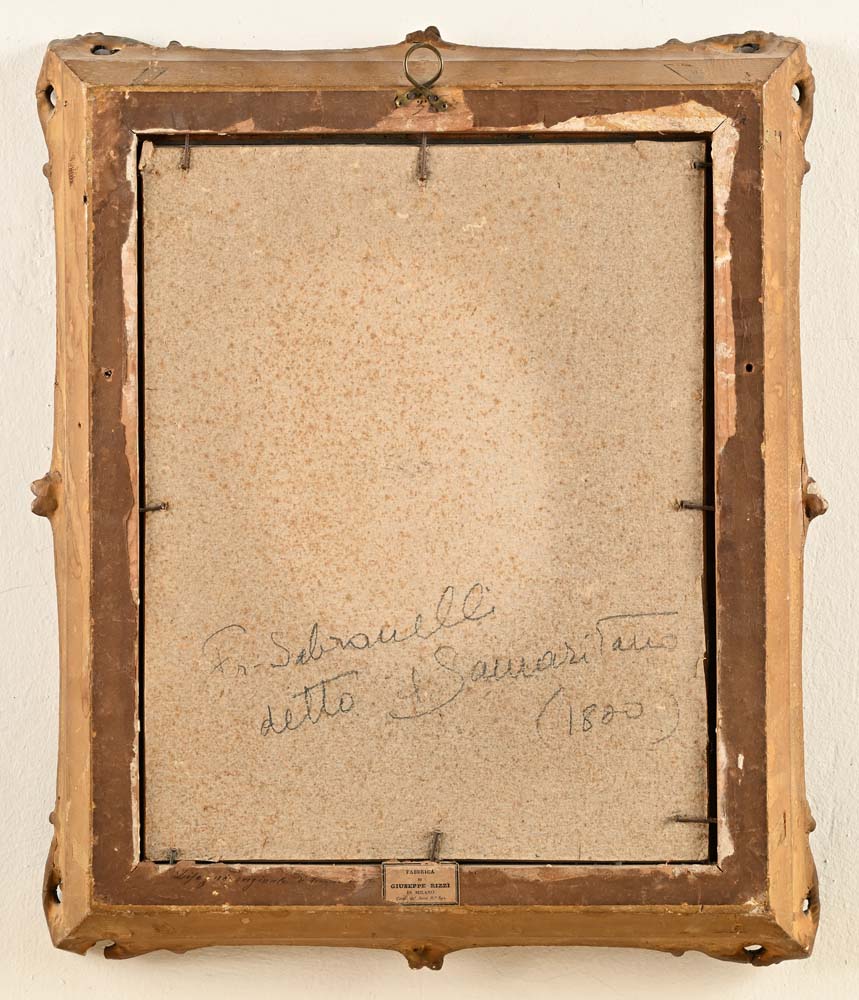 2
Fr. Sabranelli
detto Il Samaritano
(1820)
FABBRICA
DI
GIUSEPPE RIZZI
IN MILANO